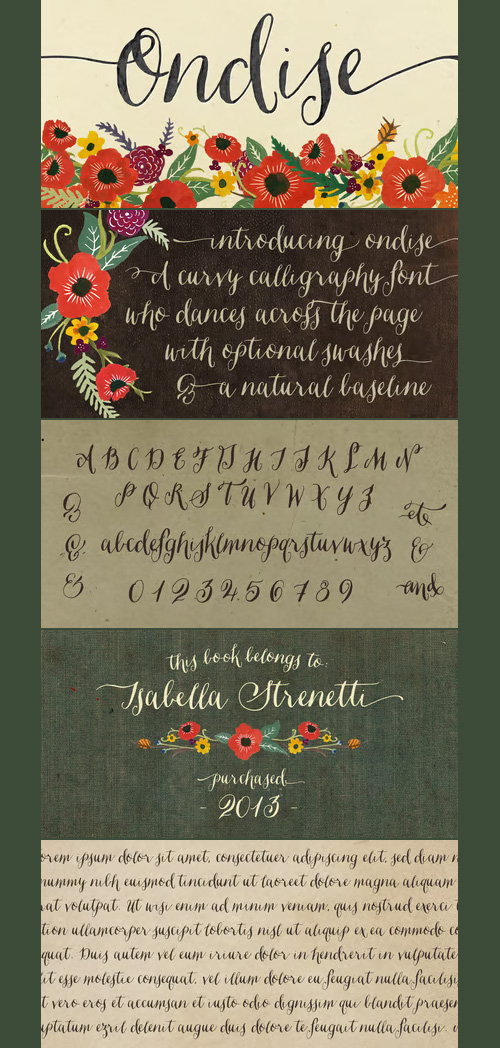 Ondise
introducing ondise
A curvy calligraphy font
who dances across the page
with optional swashes
& a natural baseline
A B C D E F G H I J K L M N
P Q R S T U V W X Y Z
& et
& abcdefghijklmnopqrstuvwxyz &
& 0 1 2 3 4 5 6 7 8 9 and
this book belongs to:
Isabella Strenetti
purchased
- 2013 -
orem ipsum dolor sit amet, consectetuer adipiscing elit, sed diam n
nummy nibh euismod tincidunt ut laoreet dolore magna aliquam
rat volutpat. Ut wisi enim ad minim veniam, quis nostrud exerci t
tion ullamcorper suscipit lobortis nisl ut aliquip ex ea commodo co
quat. Duis autem vel eum iriure dolor in hendrerit in vulputate
it esse molestie consequat, vel illum dolore eu feugiat nulla facilisi
t vero eros et accumsan et iusto odio dignissim qui blandit praesen
uptatum ezril delenit augue duis dolore te feugait nulla facilisi.